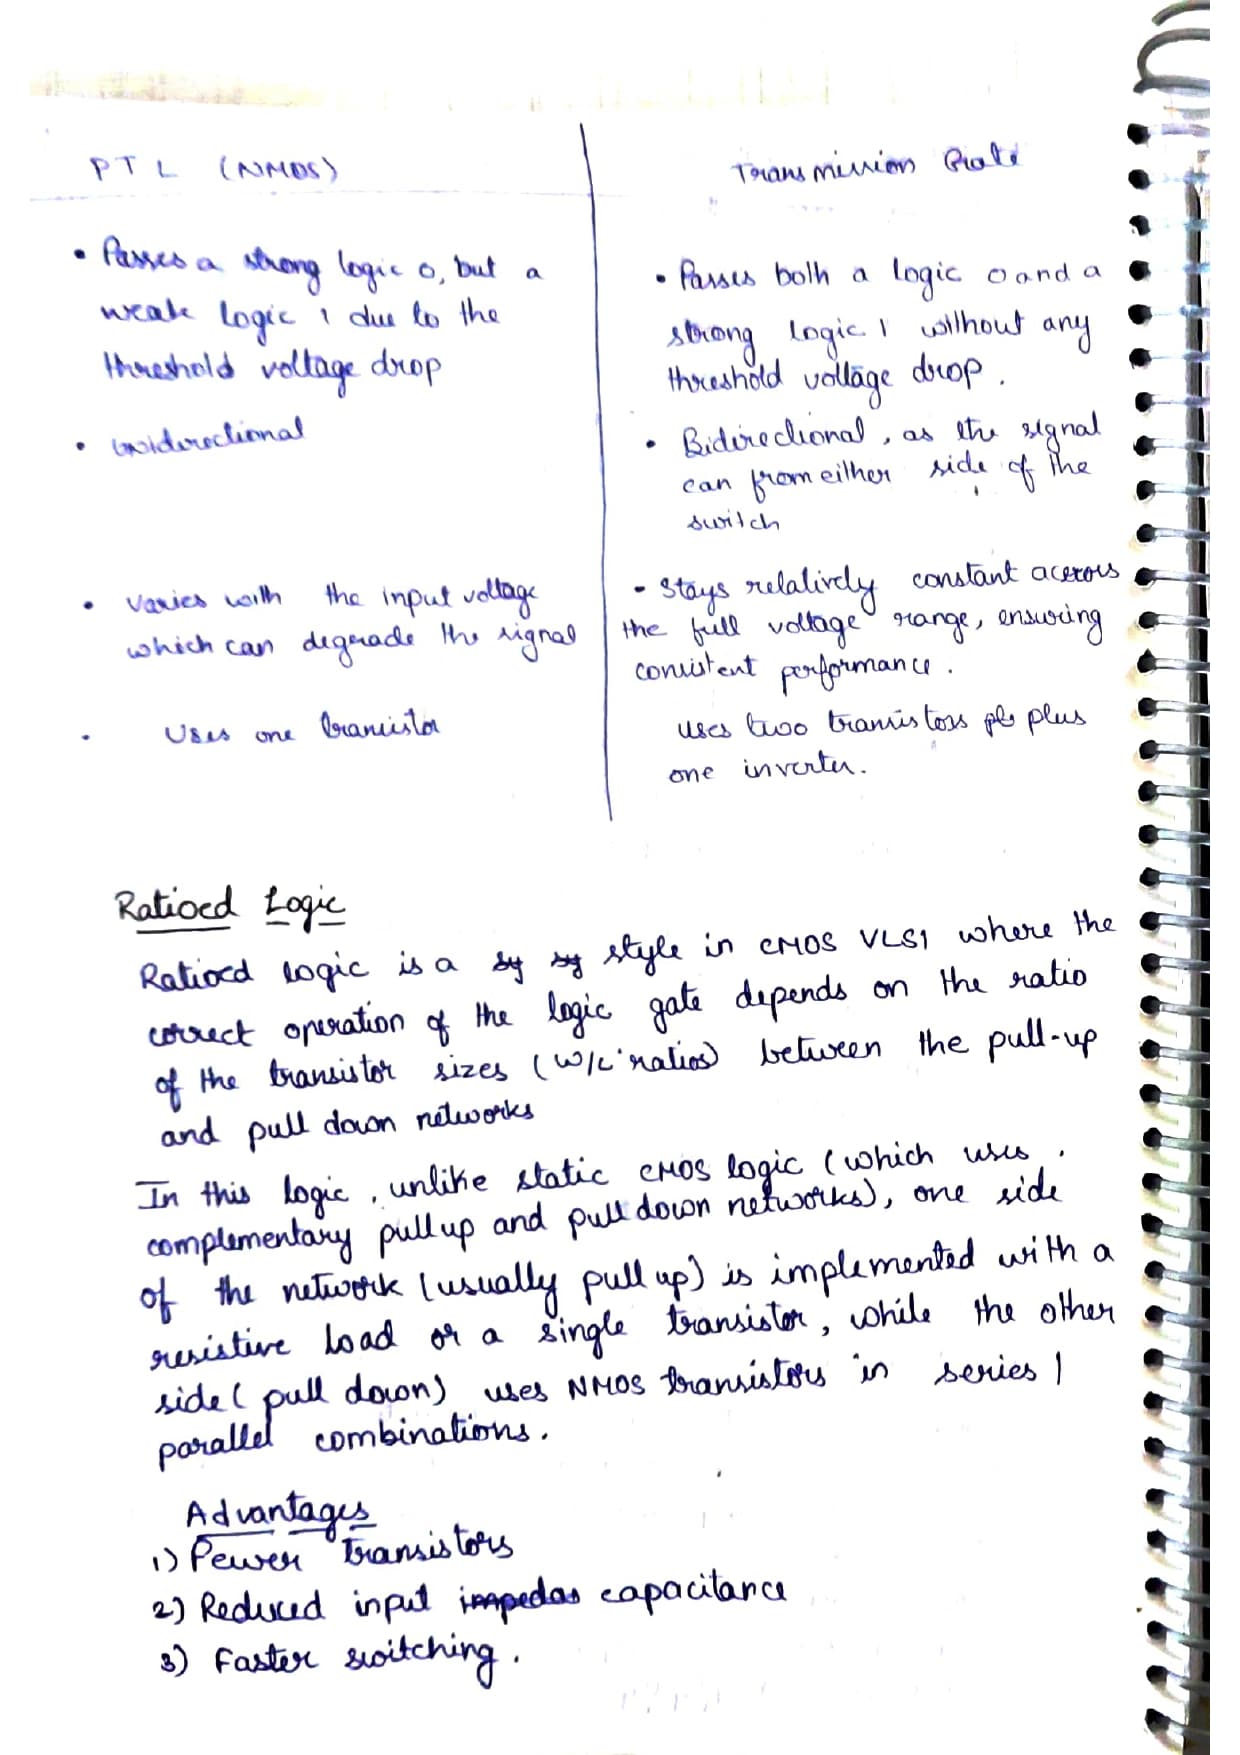 PTL (NMOS)
• Passes a strong logic 0, but a
weak logic 1 due to the
threshold voltage drop
• Unidirectional
• varies with the input voltage
which can degrade the signal
• Uses one transistor
Transmission Gate
• Passes both a logic 0 and a
strong logic 1 without any
threshold voltage drop.
• Bidirectional, as the signal
can from either side of the
switch
• Stays relatively constant acerous
the full voltage range, ensuring
consistent performance.
uses two transistors plus
one inverter.
Ratioed Logic
Ratioed logic is a style in CMOS VLSI where the
correct operation of the logic gate depends on the ratio
of the transistor sizes (W/L ratios) between the pull-up
and pull down networks
In this logic, unlike static CMOS logic (which uses
complementary pull up and pull down networks), one side
of the network (usually pull up) is implemented with a
resistive load or a single transistor, while the other
side (pull down) uses NMOS transistors in series /
parallel combinations.
Advantages
1) Fewer transistors
2) Reduced input capacitance
3) Faster switching.